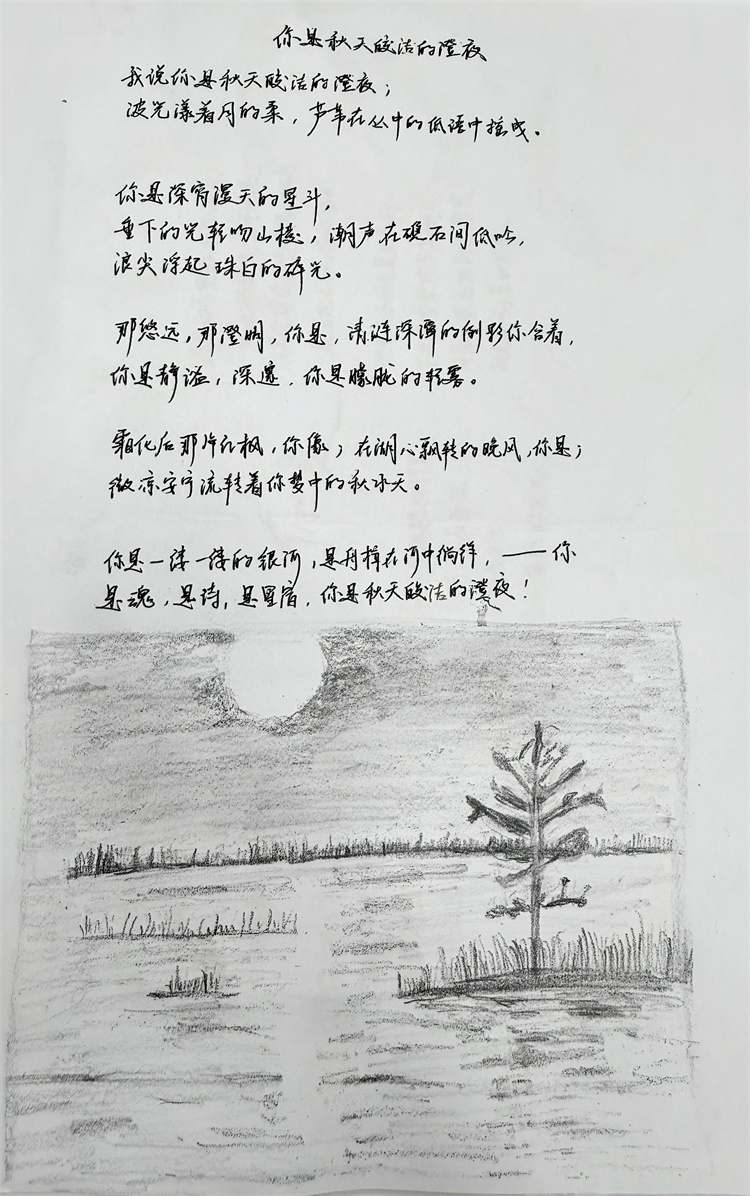 你是秋天皎洁的澄夜
我说你是秋天皎洁的澄夜；
波光漾着月的柔，芦苇在丛中的低语中摇曳。
你是深宵漫天的星斗，
垂下的光轻吻山棱，潮声在礁石间低吟，
浪尖浮起珠白的碎光。
那悠远，那澄明，你是，清涟深潭的倒影你含着，
你是静谧，深邃，你是朦胧的轻雾。
霜化后那片红枫，你像；在湖心飘转的晚风，你是；
微凉安宁流转着你梦中的秋水天。
你是一缕一缕的银河，是舟楫在河中徜徉，——你
是魂，是诗，是星宿，你是秋天皎洁的澄夜！